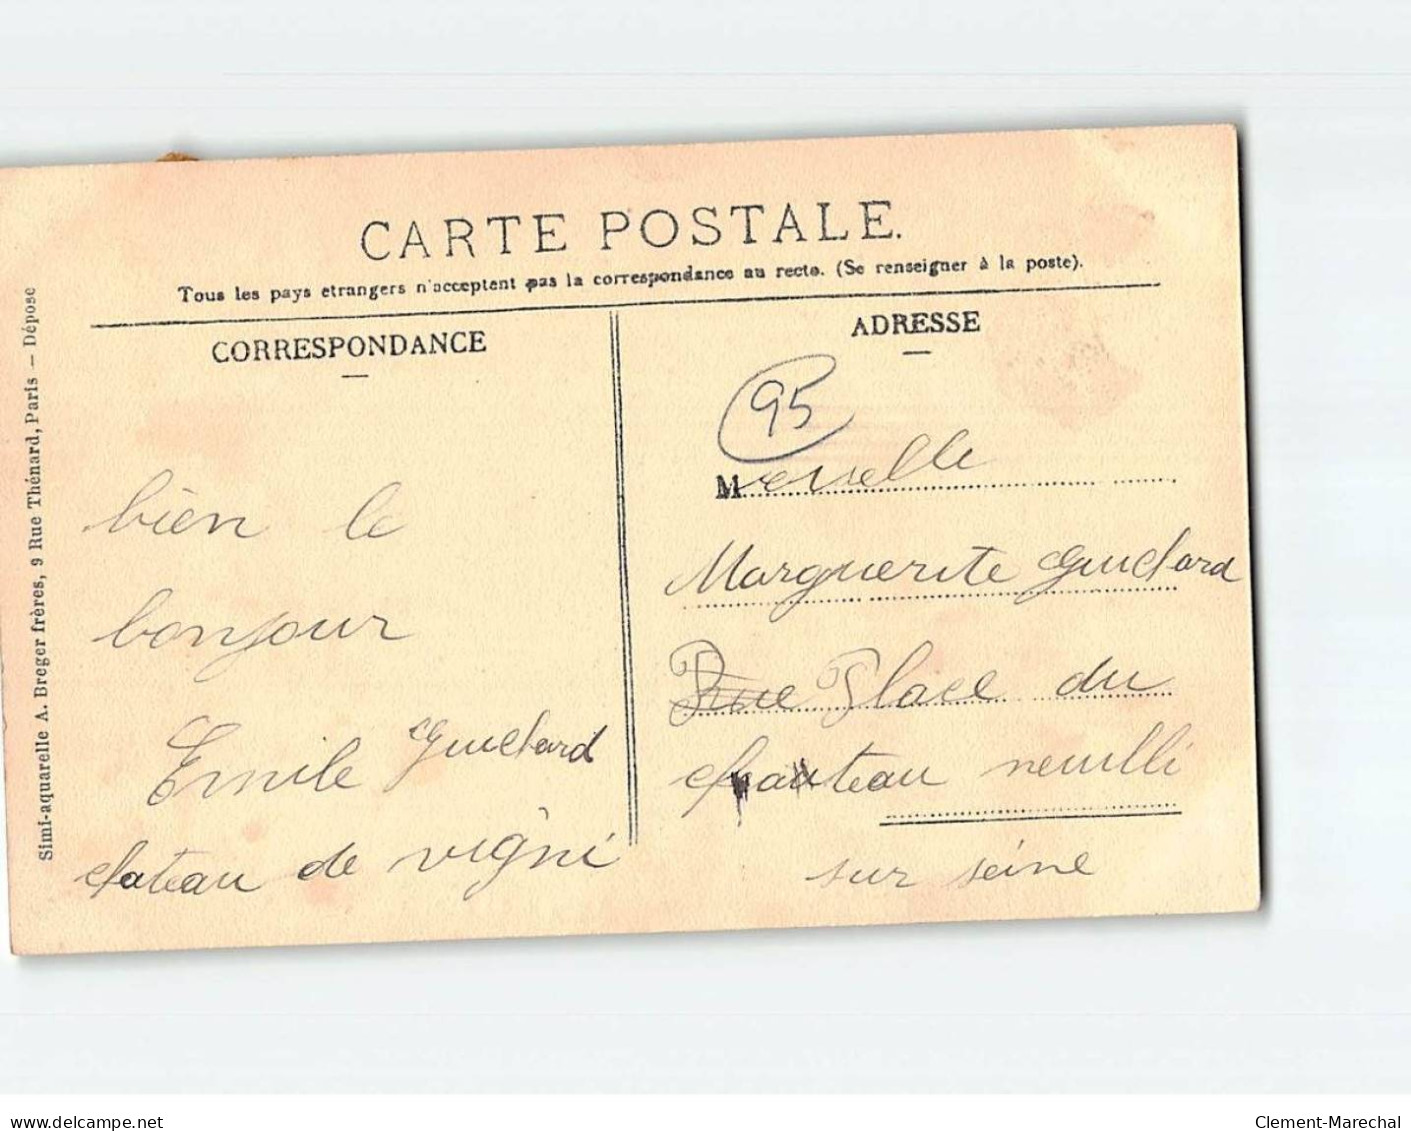 CARTE POSTALE.
Tous les pays etrangers n'acceptent pas la correspondance au recto. (Se renseigner à la poste).
CORRESPONDANCE
ADRESSE
Simi-aquarelle A. Breger frères, 9 Rue Thénard, Paris — Déposé
bien le
bonjour
Emile Guichard
chateau de vigni
95
Memelle
Marguerite Guichard
Rue Place du
chauteau neuilli
sur seine
www.delcampe.net
Clement-Marechal